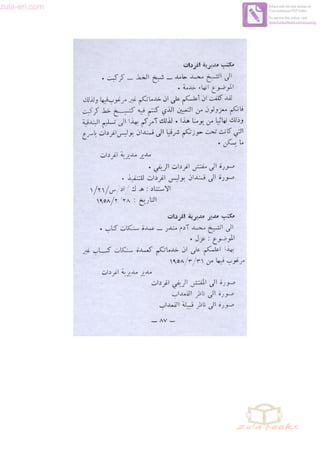 zula-eri.com
Edited with the trial version of
Foxit Advanced PDF Editor
To remove this notice, visit:
www.foxitsoftware.com/shopping
مكتب مديرية اغردات
الى الشيخ محمد حامد ــ شيخ الخط ــ كركبت .
الموضوع انهاء خدمة .
لقد كلفت ان أعلمكم على ان خدماتكم غير مرغوب فيها ولذلك
فانكم معزولون من التعيين الذي كنتم فيه كشيخ خط كركبت
وذلك نهائيا من يومنا هذا . لذلك آمركم بهذا الى تسليم البندقية
التي كانت تحت حوزتكم شرقيا الى قمندان بوليس اغردات باسرع
ما يمكن .
مدير مديرية اغردات
صورة الى مفتش اغردات الريفي .
صورة الى قمندان بوليس اغردات للتنفيذ .
الاستناد : هـ ك / اد/س/١/٢١
التاريخ : ٢٨ /١٩٥٨/٢
مكتب مدير مديرية اغردات
الى الشيخ محمد آدم مندر ــ عمدة سبتكات كتاب .
الموضوع : عزل .
بهذا اعلمكم على ان خدماتكم كعمدة سبتكات كتاب غير
مرغوب فيها من ١٩٥٨/٣/٣١
مدير مديرية اغردات
صورة الى المفتش الريفي اغردات
صورة الى ناظر القعداب
صورة الى ناظر قبيلة القعداب
ــ ٨٧ ــ
zula books